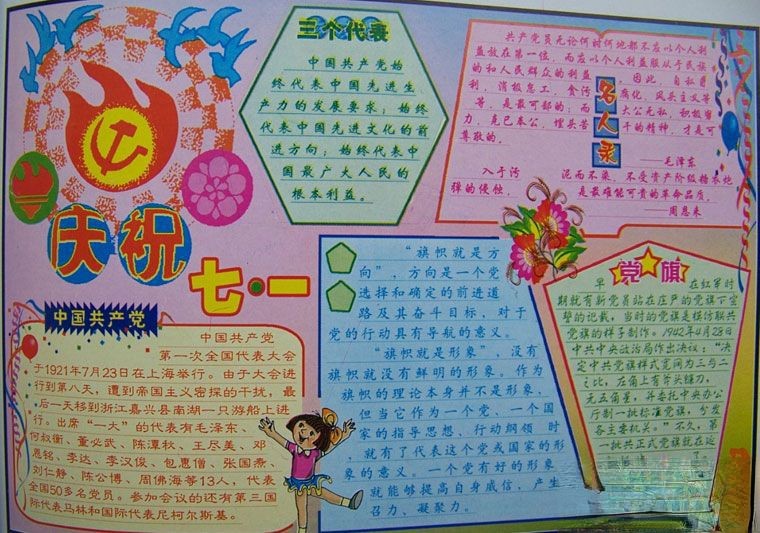 庆祝
七·一
三个代表
中国共产党始
终代表中国先进生
产力的发展要求；始终
代表中国先进文化的前
进方向；始终代表中
国最广大人民的
根本利益。
名人录
共产党员无论何时何地都不应以个人利
益放在第一位，而应以个人利益服从于民族
的和人民群众的利益。因此，自私自
利，消极怠工，贪污腐化，风头主义等
等，是最可鄙的；而大公无私，积极努
力，克已奉公，埋头苦干的精神，才是可
尊敬的。
——毛泽东
入于污泥而不染，不受资产阶级糖衣炮
弹的侵蚀，是最难能可贵的革命品质。
——周恩来
中国共产党
中国共产党
第一次全国代表大会
于1921年7月23日在上海举行。由于大会进
行到第八天，遭到帝国主义密探的干扰，最
后一天移到浙江嘉兴县南湖一只游船上进
行。出席“一大”的代表有毛泽东、
何叔衡、董必武、陈潭秋、王尽美、邓
恩铭、李达、李汉俊、包惠僧、张国焘、
刘仁静、陈公博、周佛海等13人，代表
全国50多名党员。参加会议的还有第三国
际代表马林和国际代表尼柯尔斯基。
“旗帜就是方
向”，方向是一个党
选择和确定的前进道
路及其奋斗目标，对于
党的行动具有导航的意义。
“旗帜就是形象”，没有
旗帜就没有鲜明的形象。作为
旗帜的理论本身并不是形象，
但当它作为一个党、一个国
家的指导思想、行动纲领时
，就有了代表这个党或国家的形
象的意义。一个党有好的形象
就能够提高自身威信，产生
召力、凝聚力。
党旗
早在红军时
期就有新党员站在庄严的党旗下宣
誓的记载，当时的党旗是模仿联共
党旗的样子制作。1942年4月28日
中共中央政治局作出决议：“决
定中共党旗样式宽阔为三与二
之比，在角上有斧头镰刀，
无五角星，并委托中央办公
厅制一批标准党旗，分发
各主要机关。”不久，第
一批共正式党旗就在延